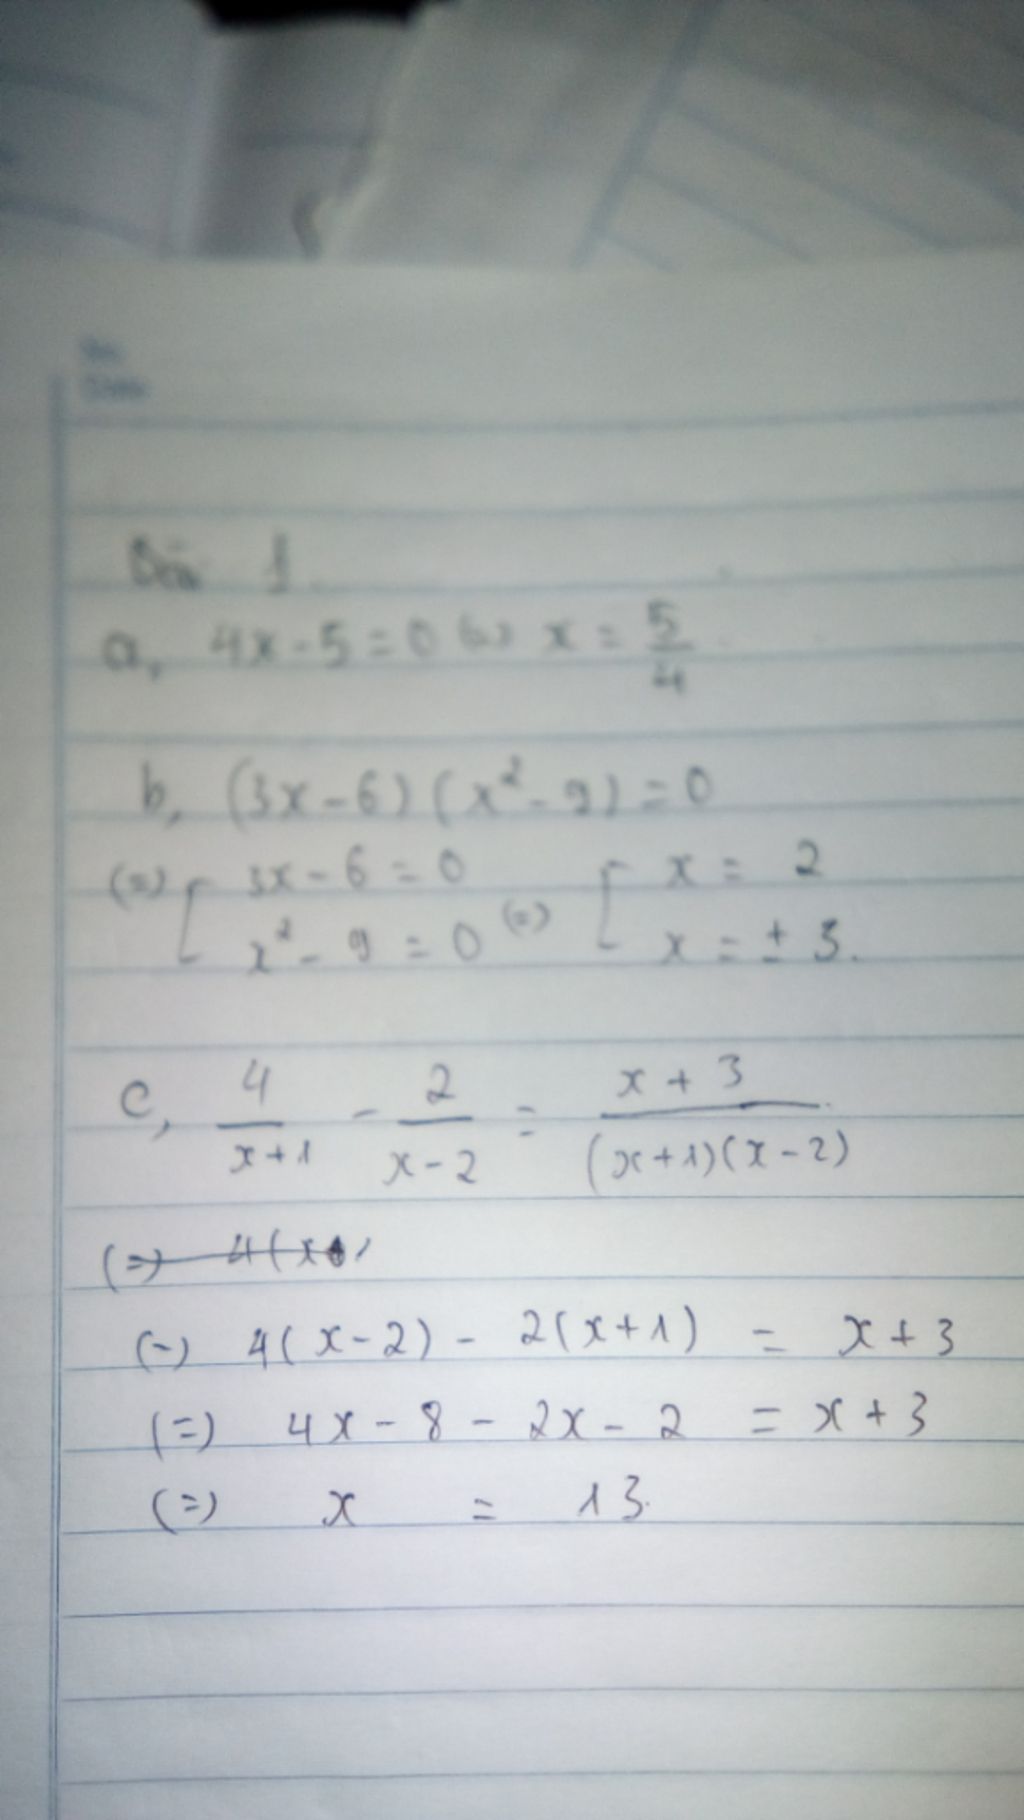 Bài 1
a, 4x - 5 = 0 (=) x = 5/4
b, (3x - 6)(x² - 9) = 0
(=) [ 3x - 6 = 0 (=) [ x = 2
x² - 9 = 0 x = ± 3.
c, 4/(x+1) - 2/(x-2) = (x + 3)/((x+1)(x-2))
(=) 4(x
(-) 4(x-2) - 2(x+1) = x+3
(=) 4x - 8 - 2x - 2 = x+3
(=) x = 13.